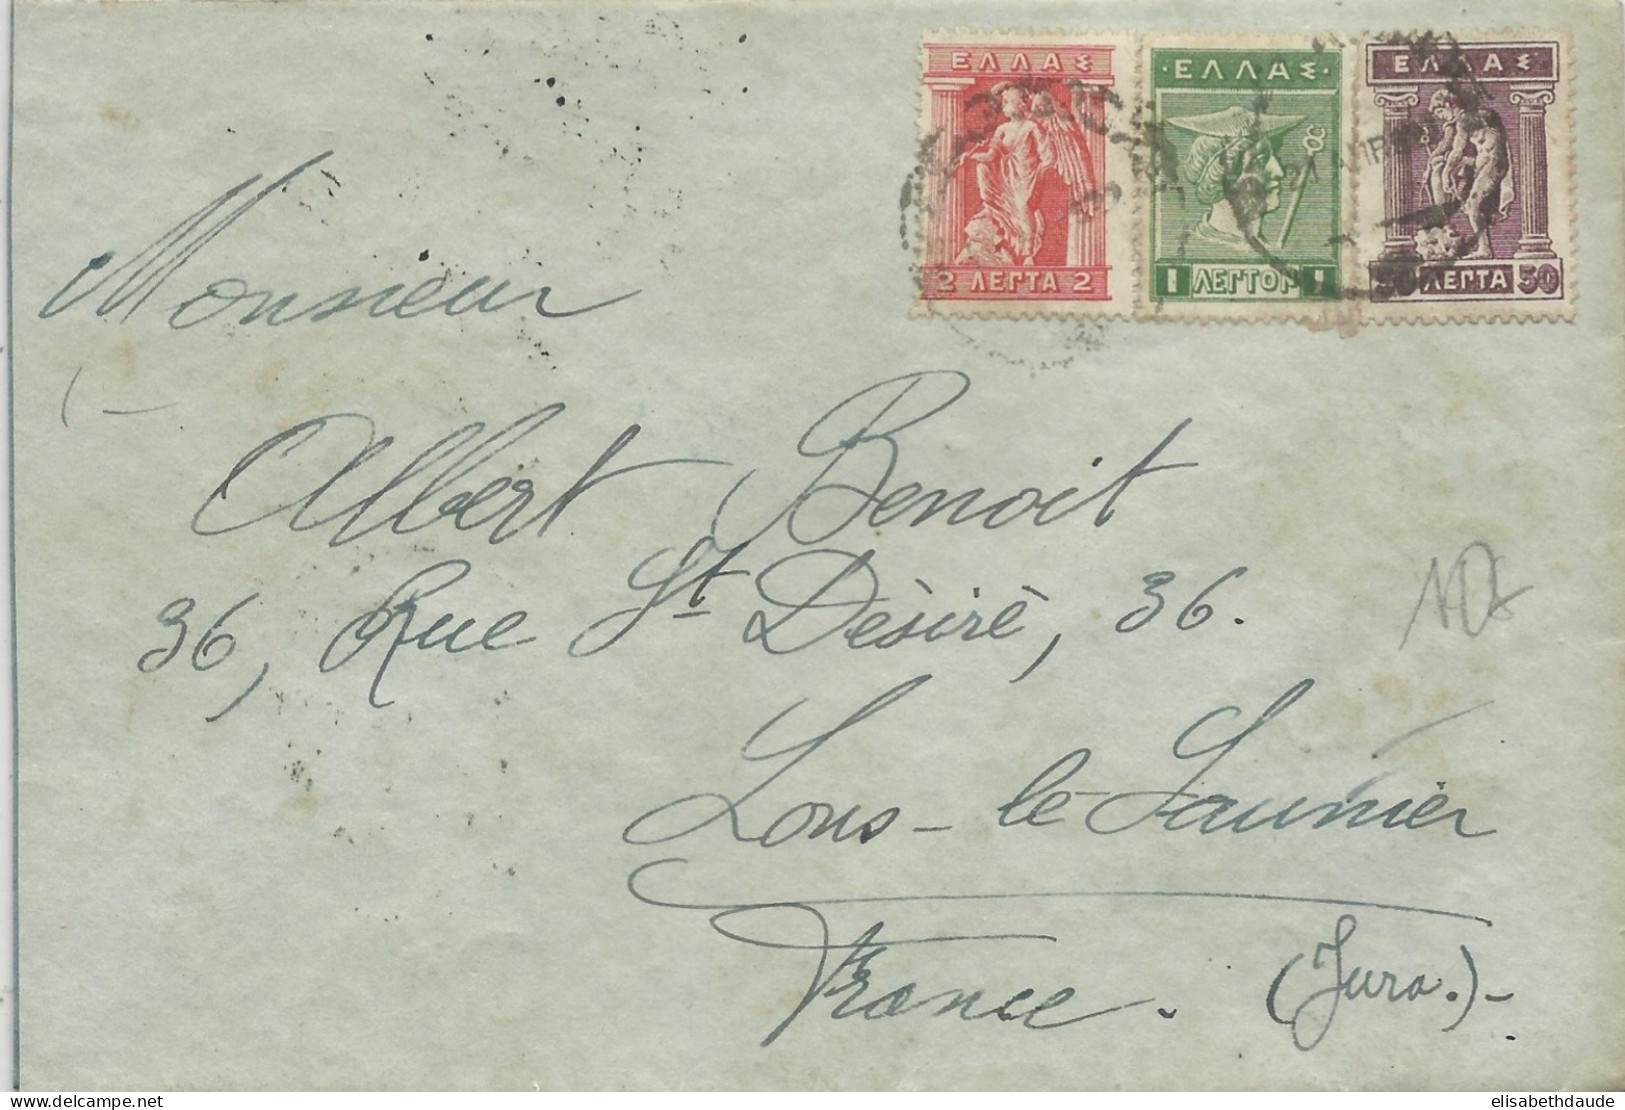 ΕΛΛΑΣ
2 ΛΕΠΤΑ 2
·ΕΛΛΑΣ·
1 ΛΕΠΤΟΝ 1
ΕΛΛΑΣ
50 ΛΕΠΤΑ 50
Monsieur
Albert Benoit
36, Rue St Dèsirè, 36.
Lons-le-Saunier
France. (Jura.)-
www.delcampe.net
elisabethdaude